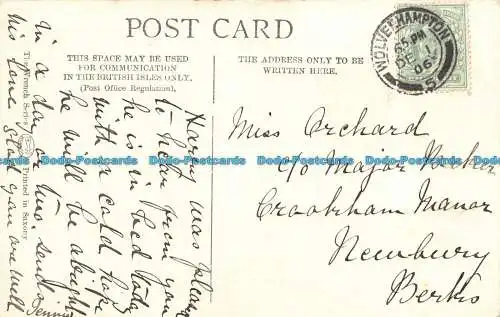 POST CARD
THIS SPACE MAY BE USED
FOR COMMUNICATION
IN THE BRITISH ISLES ONLY.
(Post Office Regulation).
THE ADDRESS ONLY TO BE
WRITTEN HERE.
WOLVERHAMPTON
PM
DE 1
06
Harry was pleased
to hear from you
he is in bed today
with a cold hope
he will be alright
in a day or two. sends
his love glad you are well
Miss Orchard
c/o Major
Crookham Manor
Newbury
Berks
The Wrench Series
Printed in Saxony
Dodo-Postcards Dodo-Postcards Dodo-Postcards Dodo-Postcards Dodo-Postcards